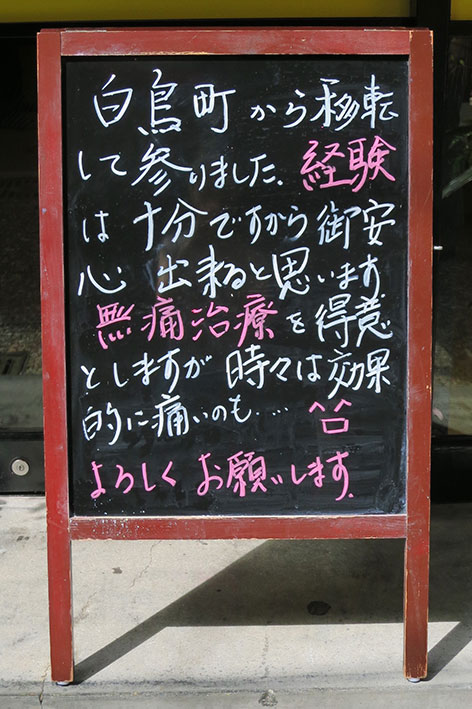 白鳥町から移転
して参りました。経験
は十分ですから御安
心出来ると思います
無痛治療を得意
としますが時々は効果
的に痛いのも……^^口
よろしくお願いします。